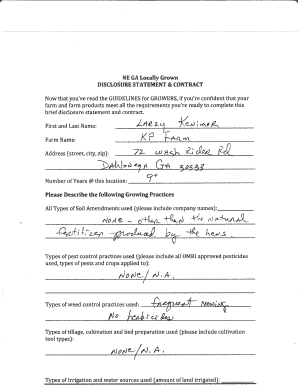 NE GA Locally Grown
DISCLOSURE STATEMENT & CONTRACT
Now that you've read the GUIDELINES for GROWERS, if you're confident that your
farm and farm products meet all the requirements you're ready to complete this
brief disclosure statement and contract.
First and Last Name: LARRY Kenimer
Farm Name: KP Farm
Address (street, city, zip): 72 Wash Rider Rd
Dahlonega GA 30533
Number of Years @ this location: 9+
Please Describe the following Growing Practices
All Types of Soil Amendments used (please include company names):
none - other than the natural
fertilizer produced by the hens
Types of pest control practices used (please include all OMRI approved pesticides
used, types of pests and crops applied to):
none/N.A.
Types of weed control practices used: frequent mowing
No herbicides
Types of tillage, cultivation and bed preparation used (please include cultivation
tool types):
none/N.A.
Types of irrigation and water sources used (amount of land irrigated):